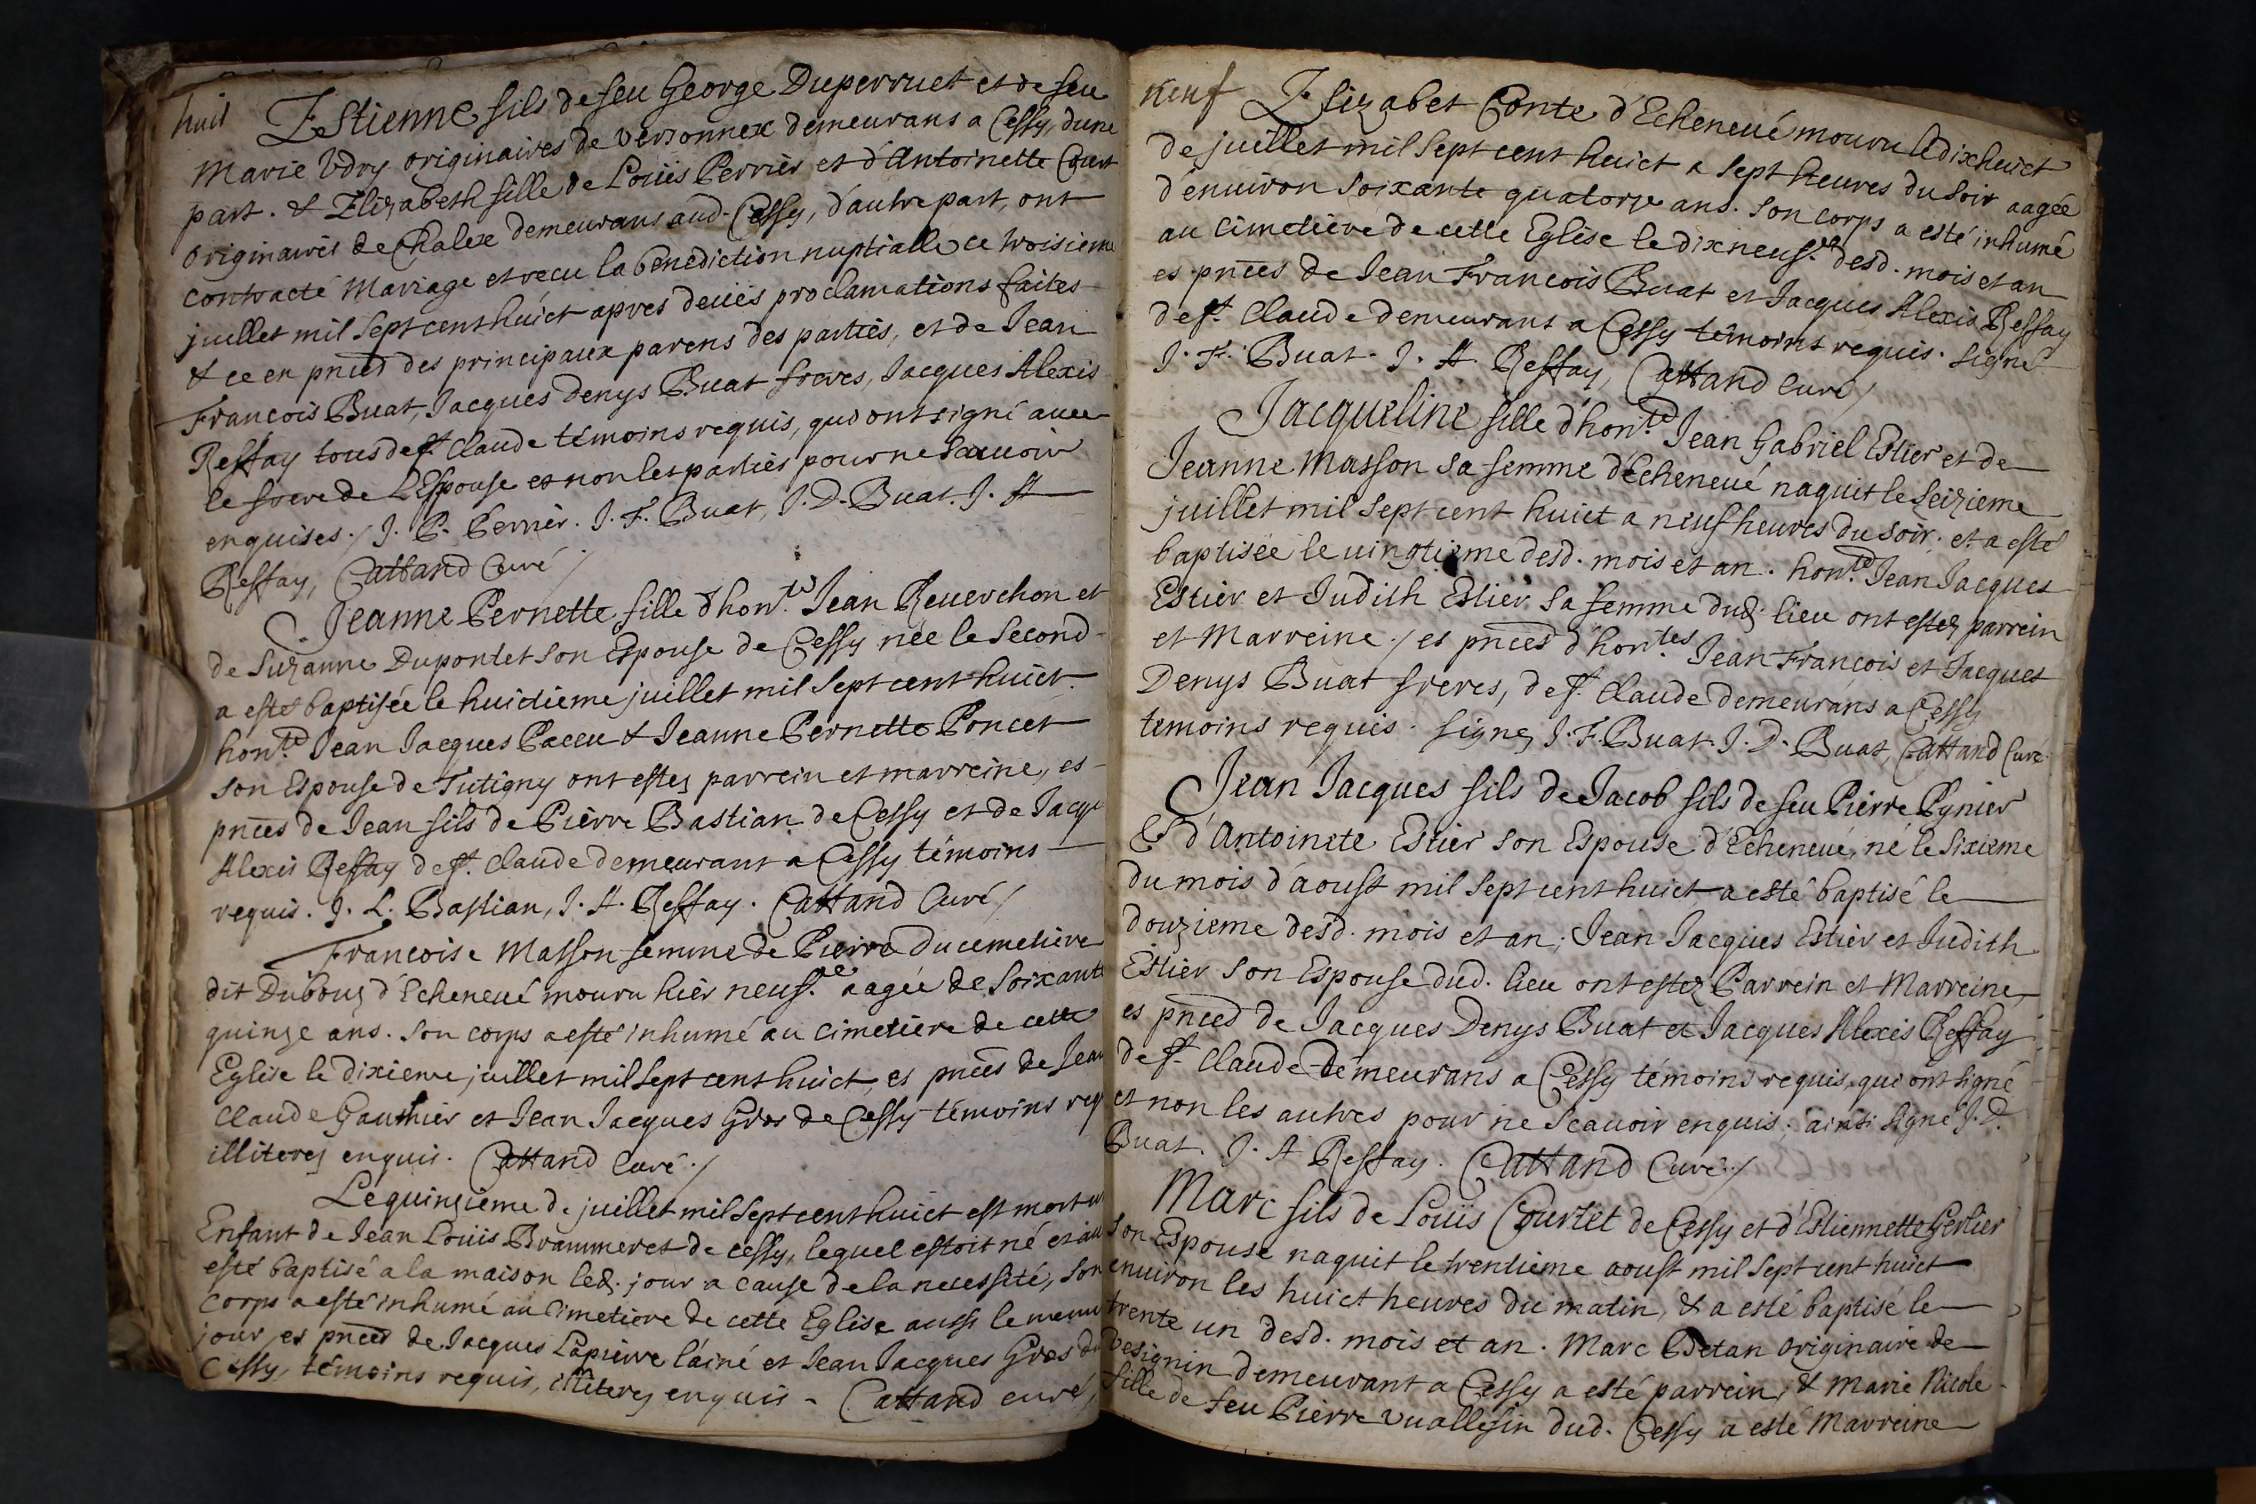 huit
Estienne fils de feu George Duperruet et de feu
Marie Vdry originaires de versonnex demeurans a Cessy, dune
part. & Elizabeth fille de Loüis Perrier et d'Antoinette
originaires de Chalex demeurans aud. Cessy, d'autre part, ont
contracté Mariage et recu la benediction nuptialle ce troisieme
juillet mil sept cent huict apres deües proclamations faites
& ce en pnces des principaux parens des parties, et de Jean
Francois Buat, Jacques Denys Buat freres, Jacques Alexis
Reffay tous de st. Claude témoins requis, qui ont signé auec
le frere de L'Espouse et non les parties pour ne Scauoir
enquises./ J. P. Perrier. J. F. Buat, J. D. Buat. J. A
Reffay, Cattand Curé /
Jeanne Pernette fille d'hon.te Jean Reuerchon et
de Suzanne Dupontet son Espouse de Cessy née le Second
a esté baptisée le huictieme juillet mil sept cent huict.
hon.te Jean Jacques Paccu & Jeanne Pernette Poncet
son Espouse de Tutigny ont estez parrein et marreine, es
pnces de Jean fils de Pierre Bastian de Cessy et de Jacq.
Alexis Reffay de st. Claude demeurant a Cessy témoins
requis. J. L. Bastian, J. A. Reffay. Cattand Curé /
Francoise Masson femme de Pierre Ducemetiere
dit Dubouz d'Echeneué mouru hier neuf.e aagée de Soixante
quinze ans. Son corps a esté inhumé au cimetiere de cette
Eglise le dixieme juillet mil sept cent huict, es pnces de Jean
Claude Gauthier et Jean Jacques Gros de Cessy témoins req
illiterez enquis. Cattand Curé./
Le quinzieme de juillet mil sept cent huict est mort un
Enfant de Jean Loüis Brammeret de cessy, lequel estoit né et
esté baptisé a la maison led. jour a cause de la necessité, son
corps a esté inhumé au Cimetiere de cette Eglise aussi le meme
jour es pnces de Jacques Lapierre l'ainé et Jean Jacques Gros du
Cessy, témoins requis, illiterez enquis - Cattand curé /
neuf
Elizabet Conte d'Echeneué mouru le dixhuict
de juillet mil sept cent huict a sept heures du soir aagée
d'enuiron soixante quatorze ans. Son corps a esté inhumé
au Cimetiere de cette Eglise le dixneuf.e desd. mois et an
es pnces de Jean Francois Buat et Jacques Alexis Reffay
de st. Claude demeurans a Cessy témoins requis. Signé
J. F. Buat. J. A. Reffay, Cattand Curé /
Jacqueline fille d'hon.te Jean Gabriel Estier et de
Jeanne Masson sa femme d'Echeneué naquit le seizieme
juillet mil sept cent huict a neuf heures du soir. et a esté
baptisée le uingtieme desd. mois et an. hon.te Jean Jacques
Estier et Judith Estier sa femme dud. lieu ont estez parrein
et Marreine ./ es pnces d'hon.tes Jean Francois et Jacques
Denys Buat freres, de st. Claude demeurans a Cessy
temoins requis. Signez J. F. Buat. J. D. Buat, Cattand Curé.
Jean Jacques fils de Jacob fils de feu Pierre Pynier
& d'Antoinete Estier son Espouse d'Echeneué, né le Sixieme
du mois d'aoust mil sept cent huict a esté baptisé le
douzieme desd. mois et an, Jean Jacques Estier et Judith
Estier son Espouse dud. lieu ont estez Parrein et Marreine,
es pnces de Jacques Denys Buat et Jacques Alexis Reffay
de st. Claude demeurans a Cessy témoins requis, qui ont signé
et non les autres pour ne Scauoir enquis. ainsi signé J. D.
Buat. J. A Reffay. Cattand Curé./
Marc fils de Louïs Courtet de Cessy et d'Estiennette Gerlier
son Espouse naquit le trentieme aoust mil sept cent huict
enuiron les huict heures du matin, & a esté baptisé le
trente un desd. mois et an. Marc Betan originaire de
Designin demeurant a Cessy a esté parrein, & Marie Nicole
fille de feu Pierre vuallesin dud. Cessy a esté Marreine